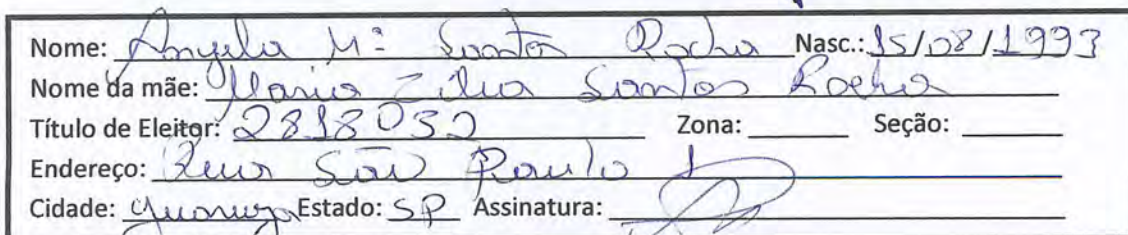 Nome: Angela Mª Santos Rocha Nasc.: 15/08/1993
Nome da mãe: Maria Zilua Santos Rocha
Título de Eleitor: 2818032 Zona: Seção:
Endereço: Rua São Paulo 1
Cidade: Estado: SP Assinatura: